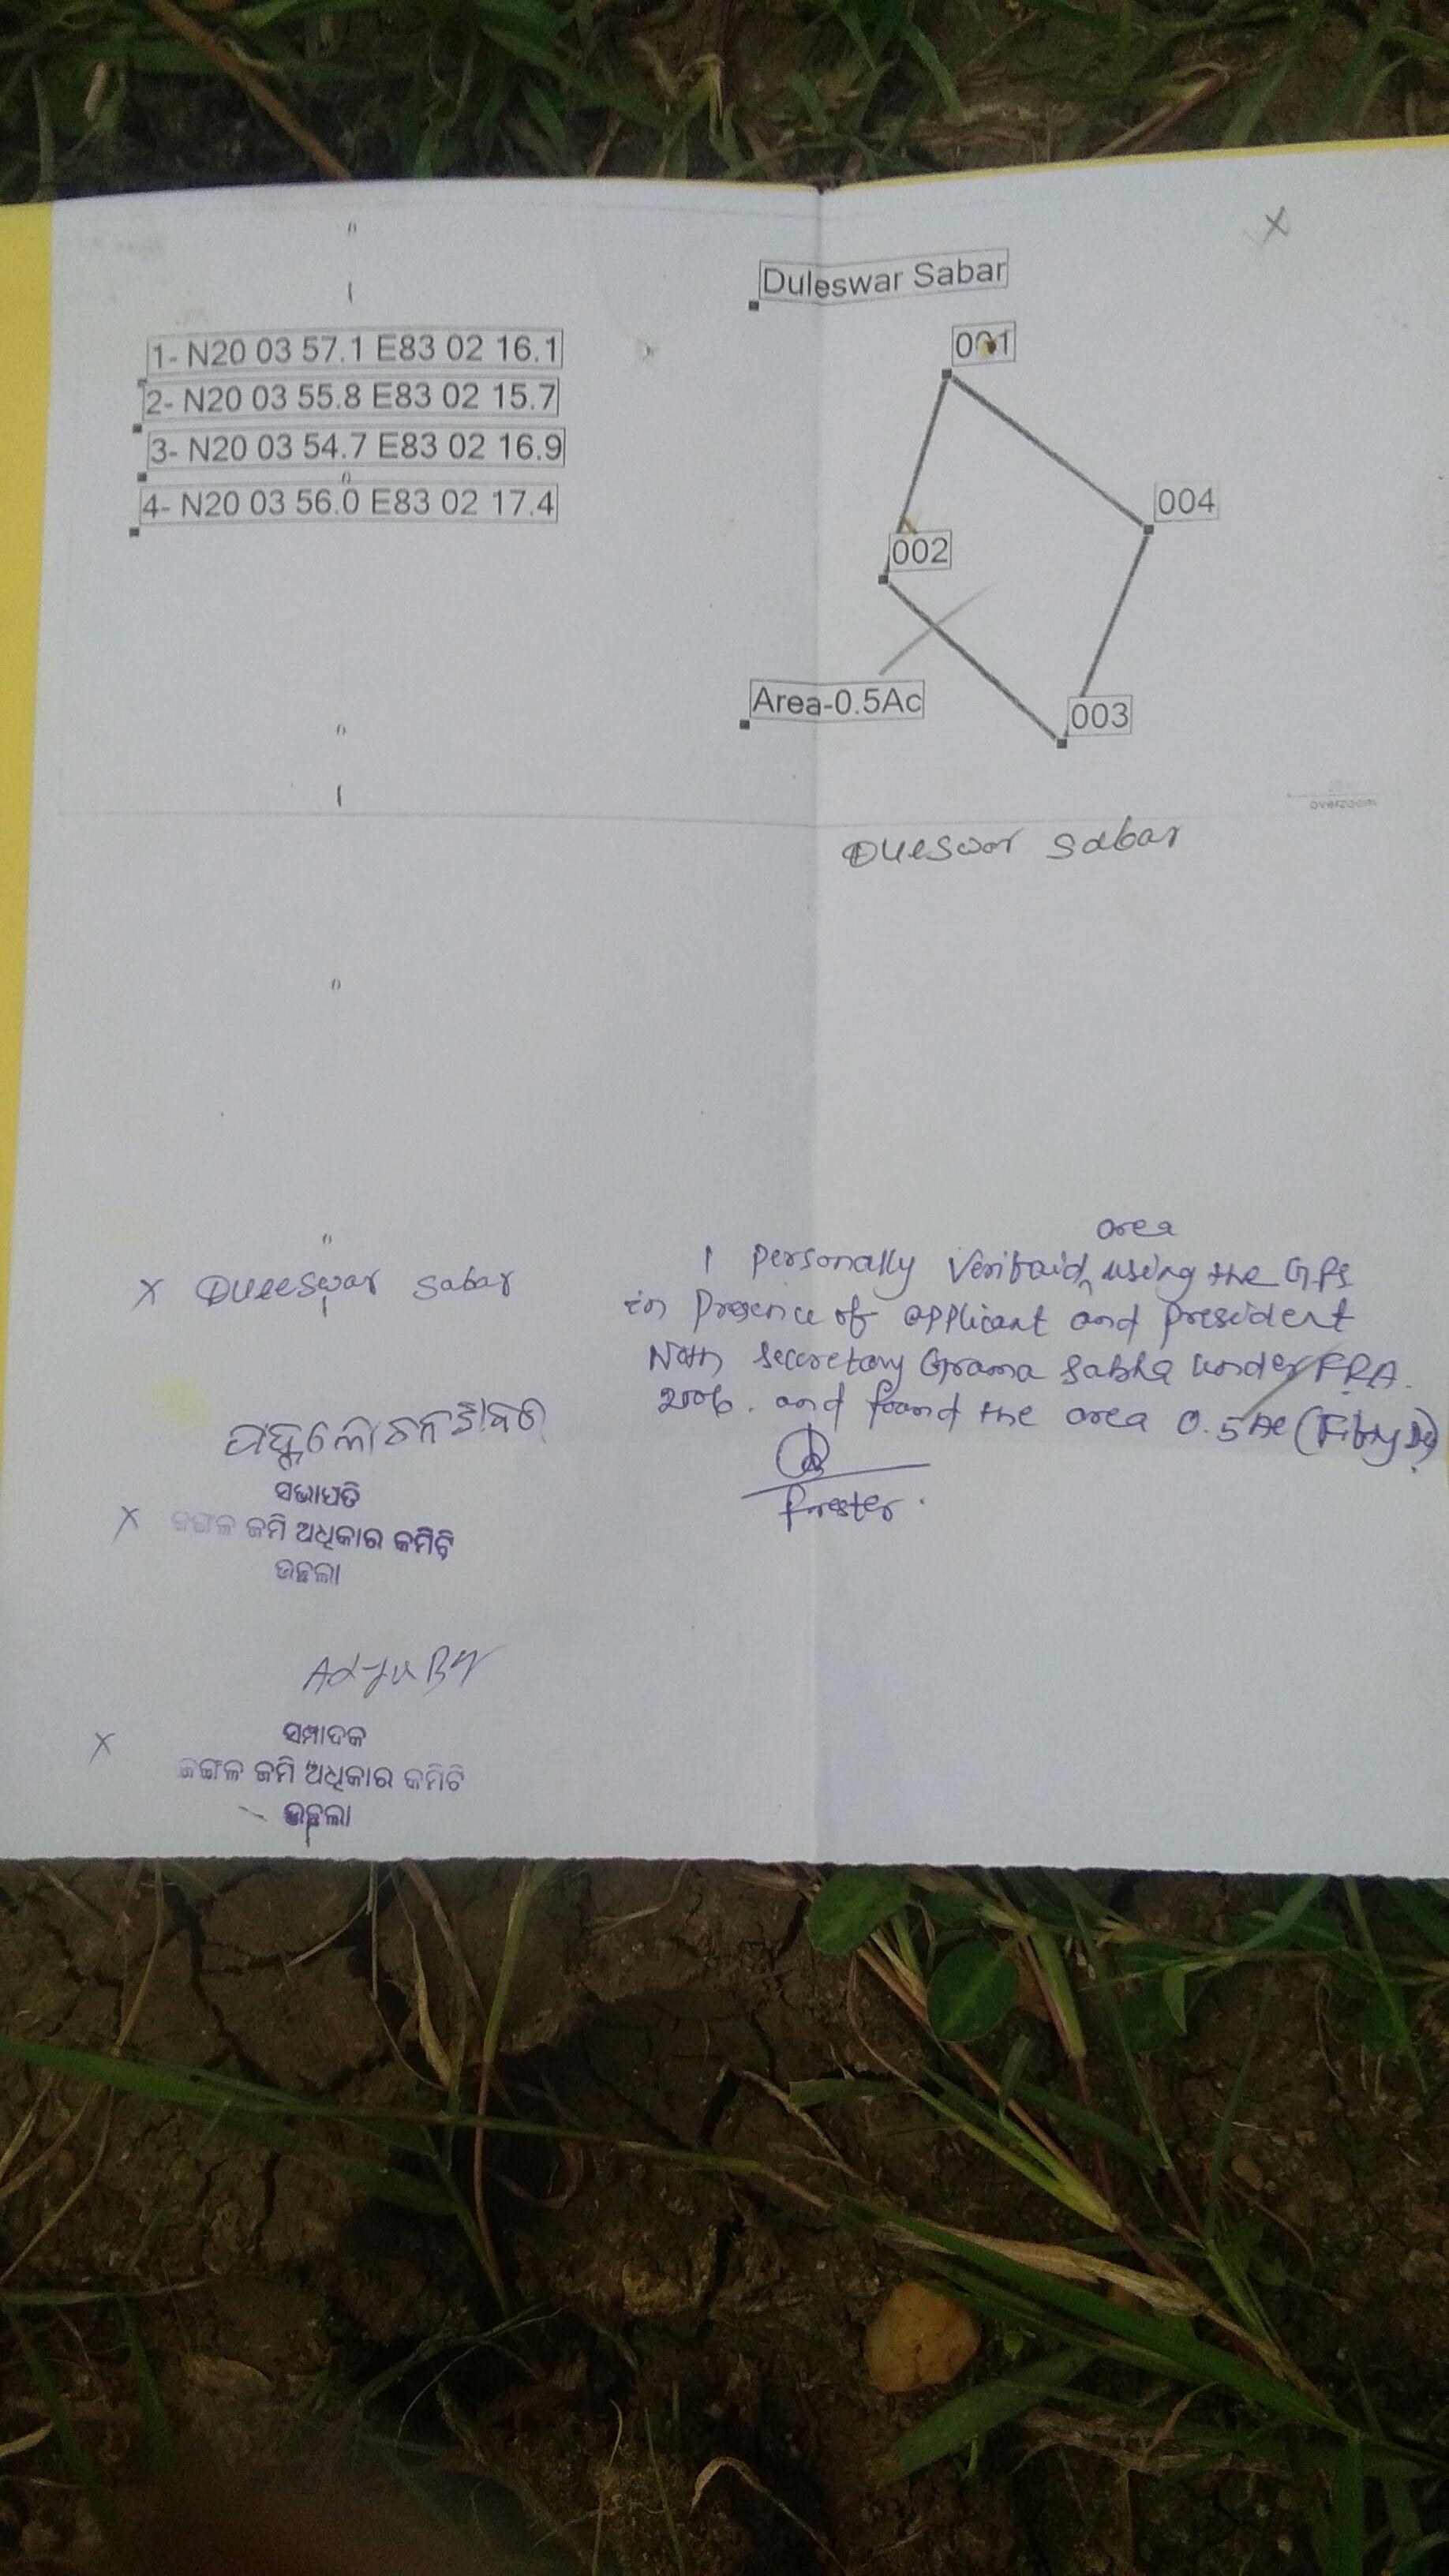 Duleswar Sabar
1- N20 03 57.1 E83 02 16.1
2- N20 03 55.8 E83 02 15.7
3- N20 03 54.7 E83 02 16.9
4- N20 03 56.0 E83 02 17.4
001
004
002
Area-0.5Ac
003
overzoom
Dueswar Sabar
X Dueeswar Sabar
area
I personally verifaid using the GPS
in presence of applicant and president
secretary Grama Sabha under FRA.
2006. and found the area 0.5 Ac (Fifty
Forester.
ସଭାପତି
X ଜଙ୍ଗଲ ଜମି ଅଧିକାର କମିଟି
ଉଛଲା
X ସମ୍ପାଦକ
ଜଙ୍ଗଲ ଜମି ଅଧିକାର କମିଟି
ଉଛଲା